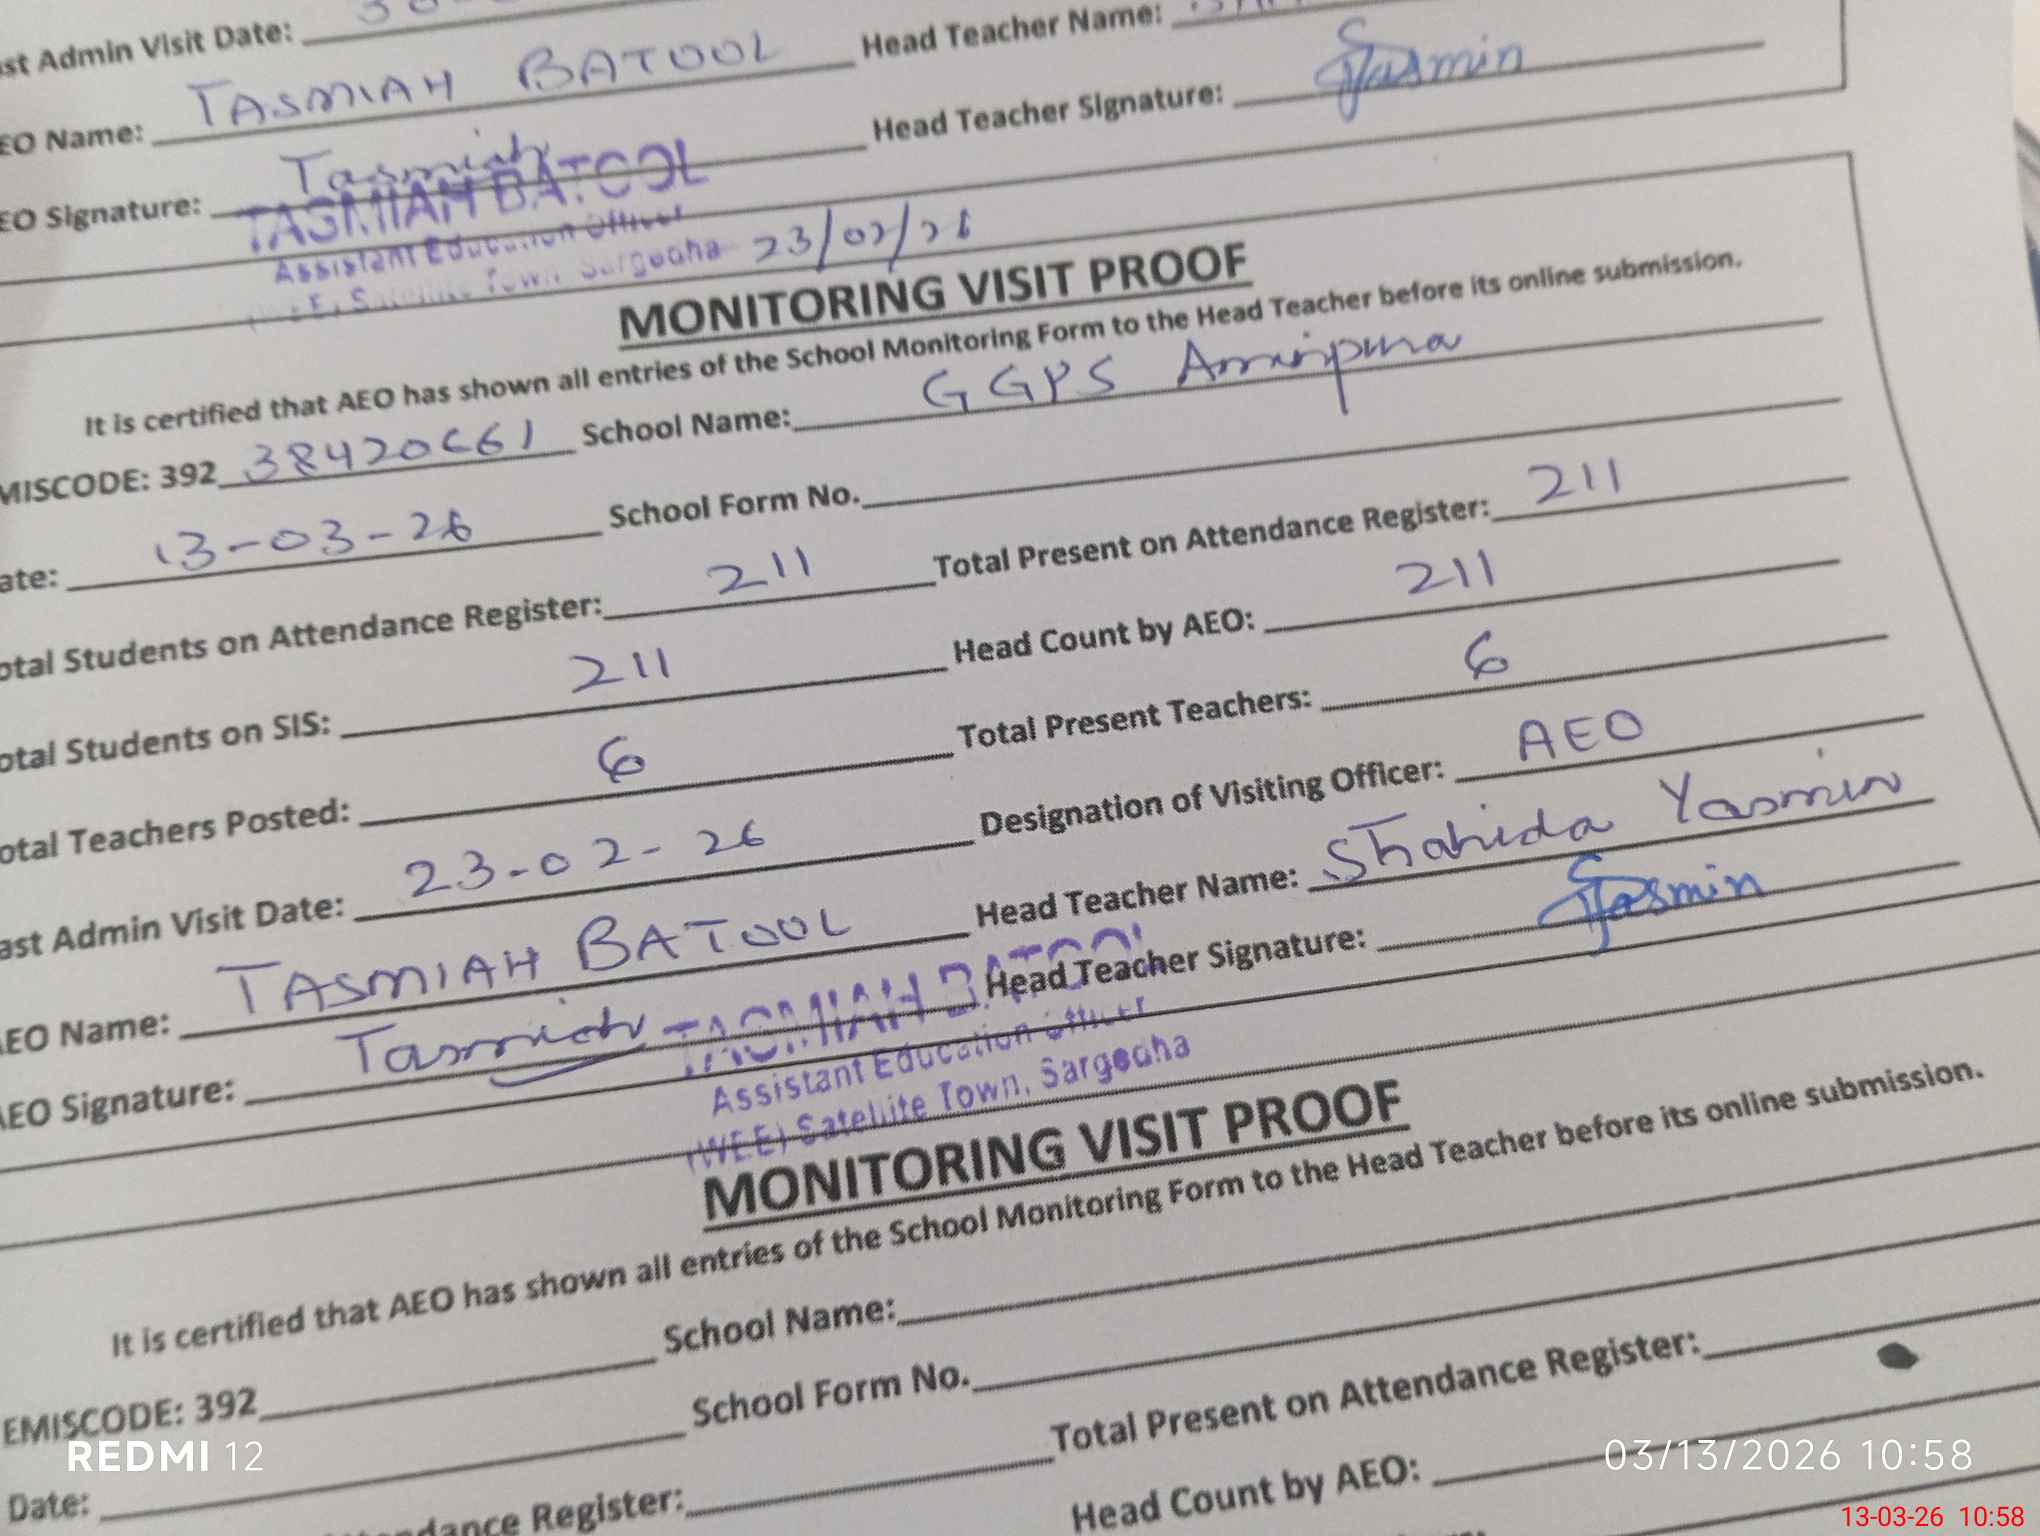 st Admin Visit Date:
Head Teacher Name:
EO Name: TASMIAH BATOOL
Head Teacher Signature: Yasmin
EO Signature: Tasmiah
TASMIAH BATOOL
Assistant Education Officer
Town, Sargodha 23/02/26
MONITORING VISIT PROOF
It is certified that AEO has shown all entries of the School Monitoring Form to the Head Teacher before its online submission.
MISCODE: 392 38420661 School Name: GGPS Amirpura
ate: 13-03-26 School Form No.
otal Students on Attendance Register: 211 Total Present on Attendance Register: 211
otal Students on SIS: 211 Head Count by AEO: 211
otal Teachers Posted: 6 Total Present Teachers: 6
ast Admin Visit Date: 23-02-26 Designation of Visiting Officer: AEO
EO Name: TASMIAH BATOOL Head Teacher Name: Shahida Yasmin
EO Signature: Tasmiah Head Teacher Signature: Yasmin
TASMIAH BATOOL
Assistant Education Officer
(WEE) Satellite Town, Sargodha
MONITORING VISIT PROOF
It is certified that AEO has shown all entries of the School Monitoring Form to the Head Teacher before its online submission.
EMISCODE: 392 School Name:
Date: School Form No.
ndance Register: Total Present on Attendance Register:
Head Count by AEO:
REDMI 12
03/13/2026 10:58
13-03-26 10:58